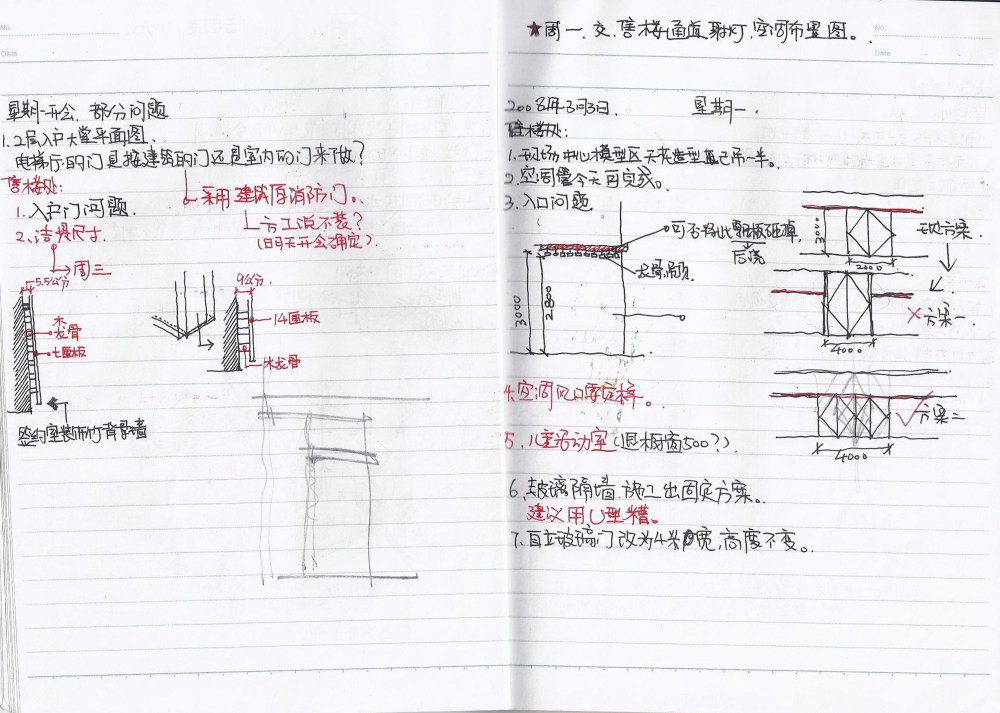 No.
Date
星期一开会，部分问题
1. 2层入户大堂平面图．
电梯厅的门是按建筑的门还是室内的门来做？
采用建筑原消防门。
方工说不装？
（明天开会确定）．
售楼处：
1. 入户门问题．
2. 洁具尺寸．
周三
5.5公分
木龙骨
七厘板
9公分
14厘板
木龙骨
★周一．交．售楼通道射灯．空调布置图。
No.
Date
2008年3月3日． 星期一．
售楼处：
1. 现场中心模型区天花造型 已吊一半。
2. 空调 今天可完成。
3. 入口问题
可否将此 板砸掉，
后浇
龙骨吊顶
3000
2800
3000
2000
现方案．
4000
× 方案一
4000
方案二
4. 空调风口要定样。
5. 儿童活动室（退橱窗500？）
6. 玻璃隔墙．施工出固定方案。
建议用U型槽。
7. 玻璃门改为4米 宽，高度不变。